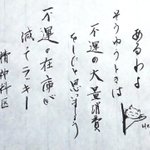 あるわよ
そうゆうときは
不運の大量消費
をしじゃ思おう
不運の在庫が
減ってラッキー
精神科医